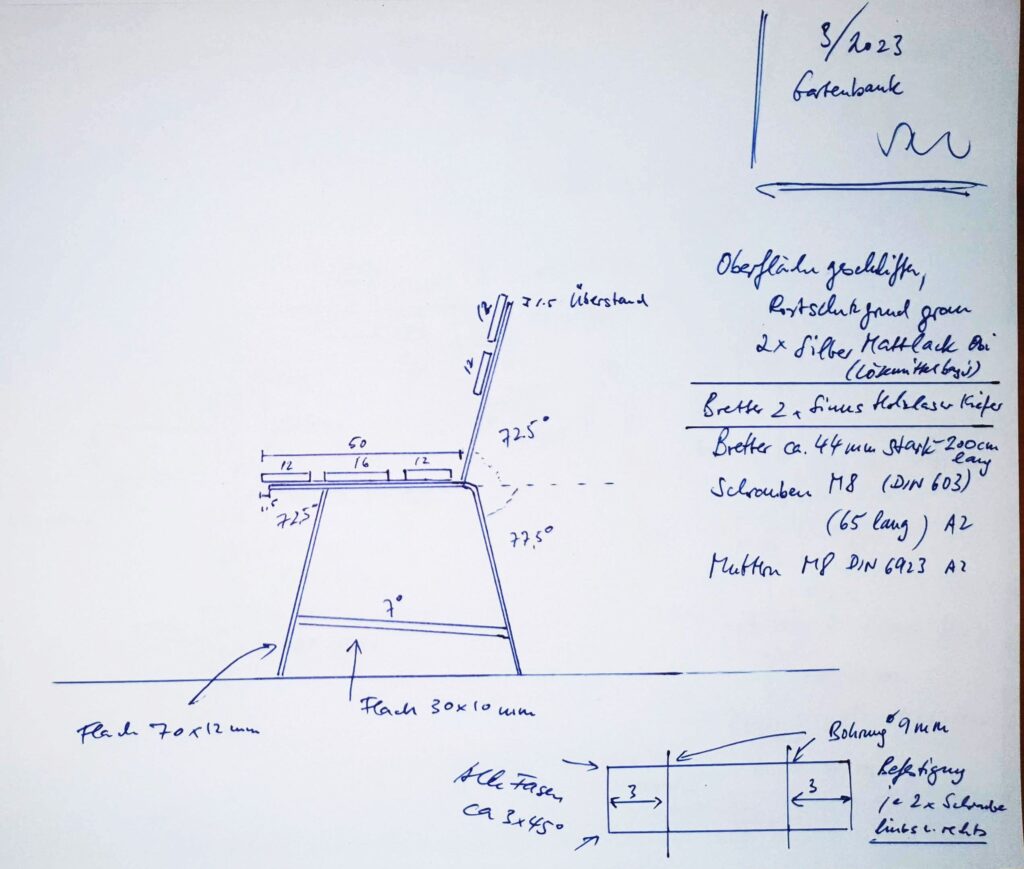 3/2023
Gartenbank
Oberfläche geschliffen,
Rostschutzgrund grau
2x Silber Mattlack Obi
(Lösemittelbasis)
Bretter 2x Sinus Holzlasur Kiefer
Bretter ca. 44mm stark 200cm
lang
Schrauben M8 (DIN 603)
(65 lang) A2
Muttern M8 DIN 6923 A2
12
1.5 Überstand
12
72.5°
50
12 16 12
1.5
72.5°
77,5°
7°
Flach 70x12mm
Flach 30x10mm
Bohrung ø 9mm
Alle Fasen
ca 3x45°
3
3
Befestigung
je 2x Schraube
links u. rechts